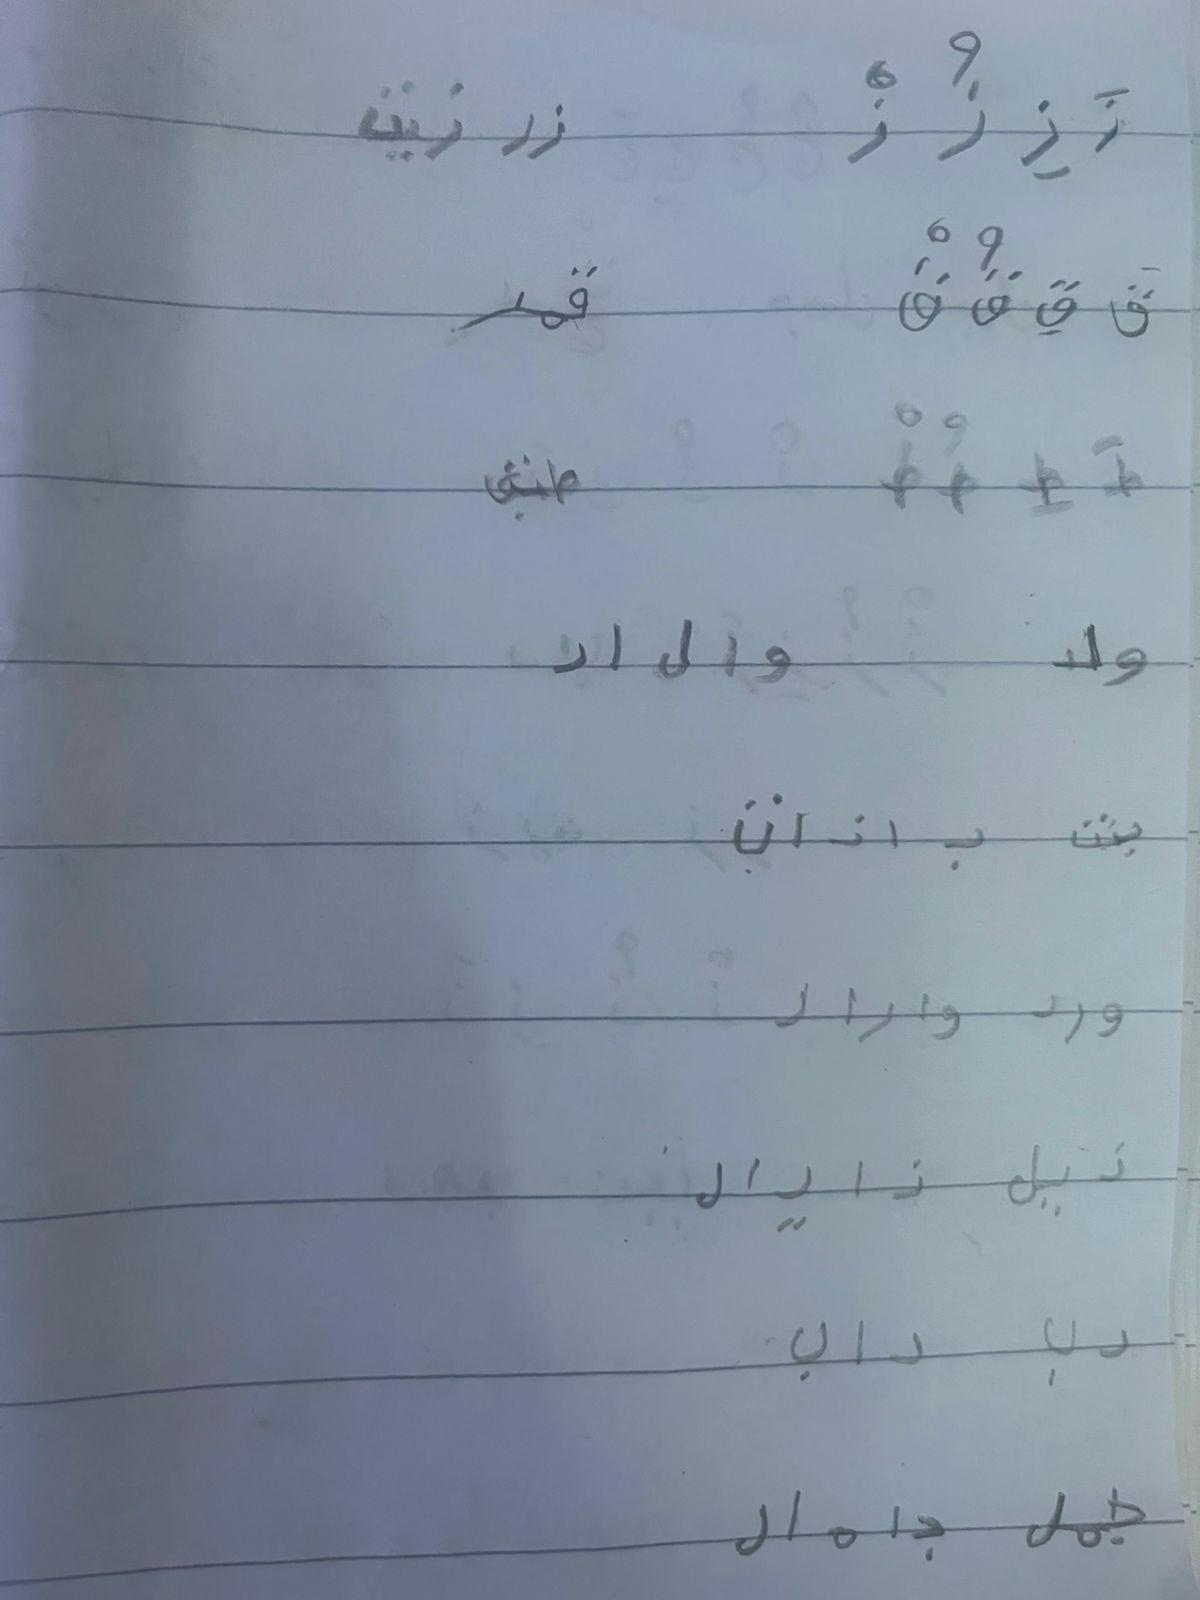 زَ زِ زُ زْ زر زيت
قَ قِ قُ قْ قمر
طَ طِ طُ طْ
ولد وا لا د
بنت با نا ت
ورد وا را د
ذيل ذا يا ل
دب دا ب
جمل جا ما ل